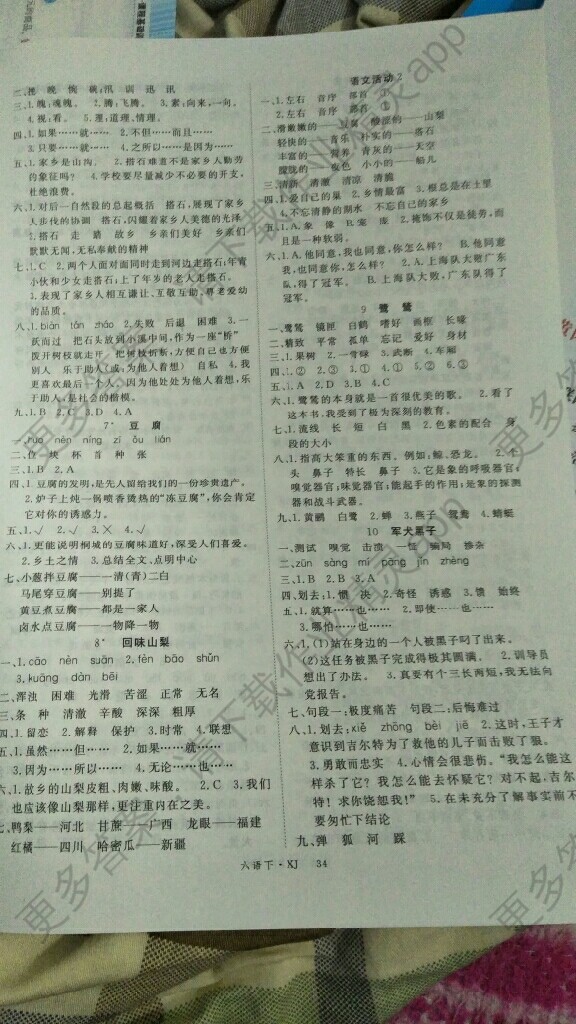 二、挽 晚 惋 碗;汛 训 迅 讯
三、1.魄;魂魄。 2.腾;飞腾。 3.素;向来,一向。
4.视;看。 5.理;道理,情理。
四、1.如果……就…… 2.不但……而且……
3.只要……就…… 4.之所以……是因为……
五、1.家乡是山沟。 2.搭石难道不是家乡人勤劳
的象征吗? 4.学校要尽量减少不必要的开支,
杜绝浪费。
六、1.对后一自然段的总起概括 搭石,展现了家乡
人步伐的协调 搭石,闪耀着家乡人美德的光泽
2.搭石 走 踏 故乡 乡亲们美好 乡亲们
默默无闻、无私奉献的精神
七、1.C 2.两个人面对面同时走到河边走搭石;年青
小伙和少女走搭石;上了年岁的老人走搭石。
3.表现了家乡人相互谦让、互敬互助、尊老爱幼
的品质。
八、1.biàn tǎn zháo 2.失败 后退 困难 3.一
跃而过 把石头放到小溪中间,作为一座“桥”
拨开树枝就走开 把树枝折断,方便自己也方便
别人 乐于助人(或:为他人着想) 自私 4.我
更喜欢最后一个人,因为他处处为他人着想,乐
于助人,是社会的楷模。
九、1.B 2.C 3.D 4.A
7* 豆 腐
二、位 块 杯 首 种 张
三、1.B 2.A
四、1.豆腐的发明,是先人留给我们的一份珍贵遗产。
2.炉子上炖一锅喷香烫热的“冻豆腐”,你会肯定
它对你的诱惑力。
五、1.√ 2.√ 3.× 4.√
六、1.更能说明桐城的豆腐味道好,深受人们喜爱。
2.乡土之情 3.总结全文,点明中心
七、小葱拌豆腐——一清(青)二白
马尾穿豆腐——别提了
黄豆煮豆腐——都是一家人
卤水点豆腐——一物降一物
8* 回味山梨
一、1.cāo nèn suān 2.fèn bāo shǔn
3.kuāng dàn bēi
二、浑浊 困难 光滑 苦涩 正常 无名
三、条 种 清澈 辛酸 深深 粗厚
四、1.留恋 2.解释 保护 3.时常 4.联想
五、1.虽然……但…… 2.如果……就……
3.因为……所以…… 4.无论……也……
六、1.故乡的山梨皮粗、肉嫩、味酸。 2.C 3.我们
也应该像山梨那样,更注重内在之美。
七、鸭梨——河北 甘蔗——广西 龙眼——福建
红橘——四川 哈密瓜——新疆
语文活动2
一、1.左右 音序 部首 ①
2.左右 音序 部首 ①
二、滑嫩嫩的——豆腐 酸涩的——山梨
轻快的——音乐 朴实的——搭石
丰富的——营养 青灰的——天空
漫长的——夜色 小小的——船儿
三、清新 清澈 清凉 清脆
四、1.爱自己的巢 2.乡情最富 3.根总是在土里
4.不忘清静的湖水 不忘自己的家乡
五、1.A.象 像 B.宠 庞 2.掩饰不仅是徒劳,而
且是一种软弱。
六、1.A.他同意,我也同意,你怎么样? B.他同意
我,也同意你,怎么样? 2.A.上海队大败,广东
队,得了冠军。 B.上海队大败广东队,得了
冠军。
9 鹭 鸶
一、鹭鸶 镜匣 白鹤 嗜好 画框 长喙
二、精致 平常 孤单 忘记 爱好 身材
三、1.果树 2.一青绿 3.武断 4.车厢
四、1.② 2.③ 3.① 4.① 5.② 6.③
五、1.A 2.D 3.B 4.C
六、1.鹭鸶的本身就是一首很优美的歌。 2.看了
这本书,我受到了极为深刻的教育。
七、1.流线 长 短 白 黑 2.色素的配合 身
段的大小
八、1.指高大笨重的东西。例如:鲸、恐龙。 2.个
头 鼻子 特长 鼻子 3.它是象的呼吸器官;
嗅觉器官;味觉器官;能起手的作用;是象的探测
器和战斗武器。
九、1.黄鹂 白鹭 2.蝉 3.燕子 鸳鸯 4.蜻蜓
10 军犬黑子
一、测试 嗅觉 击溃 一怔 骗局 掺杂
二、zūn sàng mí pāng jìn zhēng
三、1.B 2.B 3.A
四、1.划去:惯 决 2.奇怪 诱惑 3.馈 始终
五、1.就算……也…… 2.即使……也……
3.哪怕……也……
六、1.(1)站在身边的一个人被黑子叼了出来。
(2)这任务被黑子完成得极其圆满。 2.训导员
想出了办法。 3.真要有个三长两短,我无法向
党报告。
七、句段一:极度痛苦 句段二:后悔难过
八、1.划去:xiě zhōng bèi jiē 2.这时,王子才
意识到吉尔特为了救他的儿子而击败了狼。
3.勇敢而忠实 4.心情会很悲伤。“我怎么能这
样杀了它?我怎么能去怀疑它?对不起,吉尔
特!求你饶恕我!” 5.在未充分了解事实前不
要匆忙下结论
九、弹 弧 河 踩
六语下·XJ 34
更多答案,请下载作业精灵app